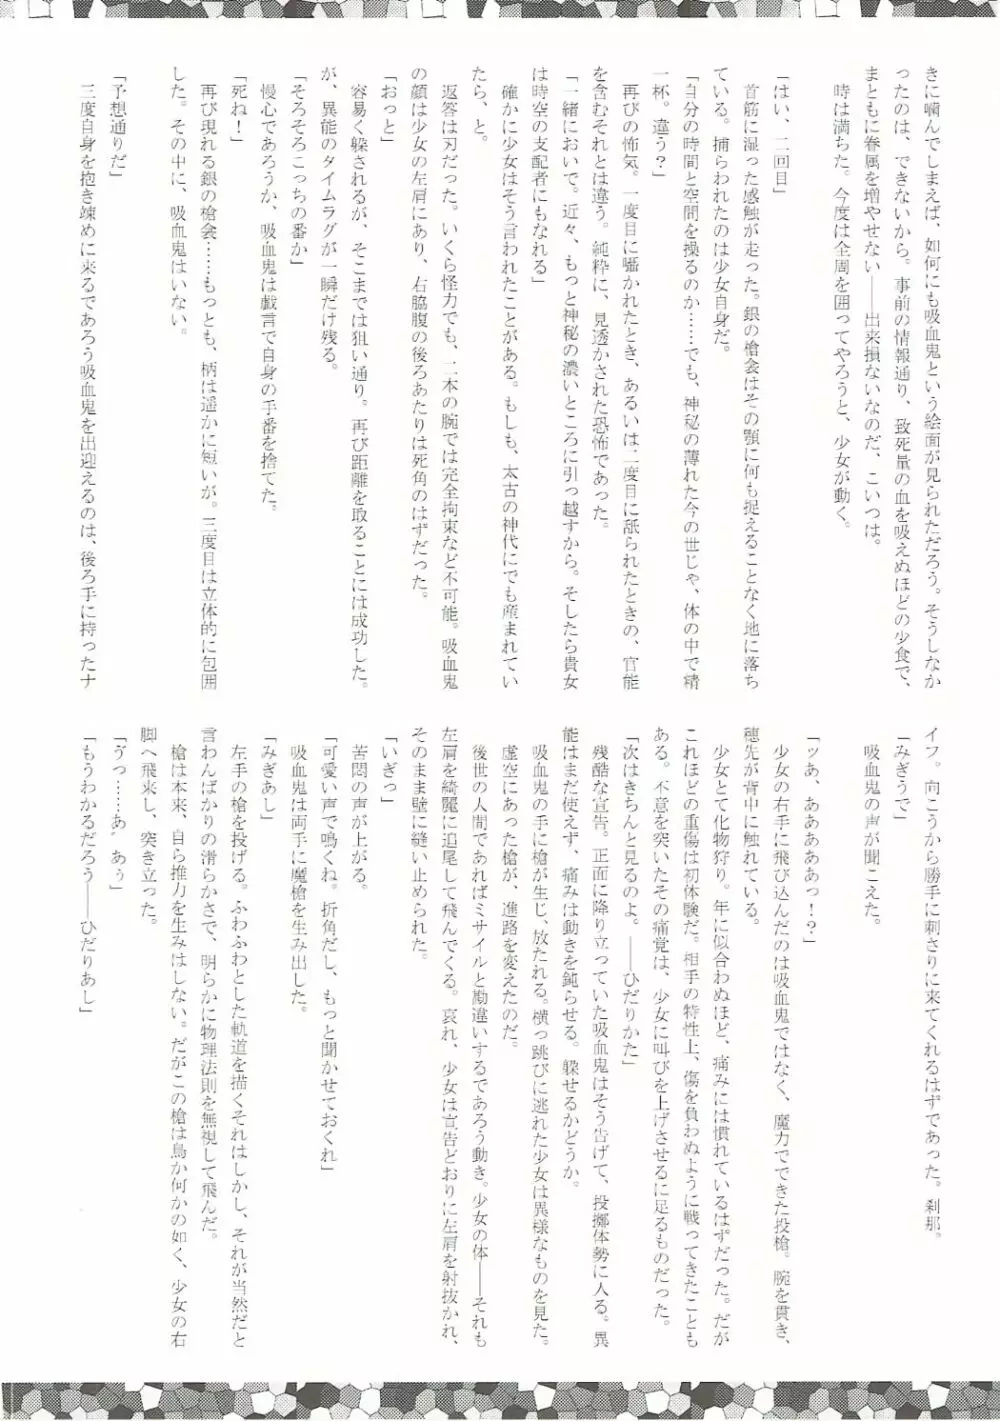 きに嚙んでしまえば、如何にも吸血鬼という絵面が見られただろう。そうしなか
ったのは、できないから。事前の情報通り、致死量の血を吸えぬほどの少食で、
まともに眷属を増やせない――出来損ないなのだ、こいつは。
時は満ちた。今度は全周を囲ってやろうと、少女が動く。
「はい、二回目」
首筋に湿った感触が走った。銀の槍衾はその顎に何も捉えることなく地に落ち
ている。捕らわれたのは少女自身だ。
「自分の時間と空間を操るのか……でも、神秘の薄れた今の世じゃ、体の中で精
一杯。違う？」
再びの怖気。一度目に囁かれたとき、あるいは二度目に舐られたときの、官能
を含むそれとは違う。純粋に、見透かされた恐怖であった。
「一緒においで。近々、もっと神秘の濃いところに引っ越すから。そしたら貴女
は時空の支配者にもなれる」
確かに少女はそう言われたことがある。もしも、太古の神代にでも産まれてい
たら、と。
返答は刃だった。いくら怪力でも、二本の腕では完全拘束など不可能。吸血鬼
の顔は少女の左肩にあり、右脇腹の後ろあたりは死角のはずだった。
「おっと」
容易く躱されるが、そこまでは狙い通り。再び距離を取ることには成功した。
が、異能のタイムラグが一瞬だけ残る。
「そろそろこっちの番か」
慢心であろうか、吸血鬼は戯言で自身の手番を捨てた。
「死ね！」
再び現れる銀の槍衾……もっとも、柄は遥かに短いが。三度目は立体的に包囲
した。その中に、吸血鬼はいない。
「予想通りだ」
三度自身を抱き竦めに来るであろう吸血鬼を出迎えるのは、後ろ手に持ったナ
イフ。向こうから勝手に刺さりに来てくれるはずであった。刹那。
「みぎうで」
吸血鬼の声が聞こえた。
「ッあ、あああああっ！？」
少女の右手に飛び込んだのは吸血鬼ではなく、魔力でできた投槍。腕を貫き、
穂先が背中に触れている。
少女とて化物狩り。年に似合わぬほど、痛みには慣れているはずだった。だが
これほどの重傷は初体験だ。相手の特性上、傷を負わぬように戦ってきたことも
ある。不意を突いたその痛覚は、少女に叫びを上げさせるに足るものだった。
「次はきちんと見るのよ。――ひだりかた」
残酷な宣告。正面に降り立っていた吸血鬼はそう告げて、投擲体勢に入る。異
能はまだ使えず、痛みは動きを鈍らせる。躱せるかどうか。
吸血鬼の手に槍が生じ、放たれる。横っ跳びに逃れた少女は異様なものを見た。
虚空にあった槍が、進路を変えたのだ。
後世の人間であればミサイルと勘違いするであろう動き。少女の体――それも
左肩を綺麗に追尾して飛んでくる。哀れ、少女は宣告どおりに左肩を射抜かれ、
そのまま壁に縫い止められた。
「いぎっ」
苦悶の声が上がる。
「可愛い声で鳴くね。折角だし、もっと聞かせておくれ」
吸血鬼は両手に魔槍を生み出した。
「みぎあし」
左手の槍を投げる。ふわふわとした軌道を描くそれはしかし、それが当然だと
言わんばかりの滑らかさで、明らかに物理法則を無視して飛んだ。
槍は本来、自ら推力を生みはしない。だがこの槍は鳥か何かの如く、少女の右
脚へ飛来し、突き立った。
「ゔっ……あ゛あぅ」
「もうわかるだろう――ひだりあし」